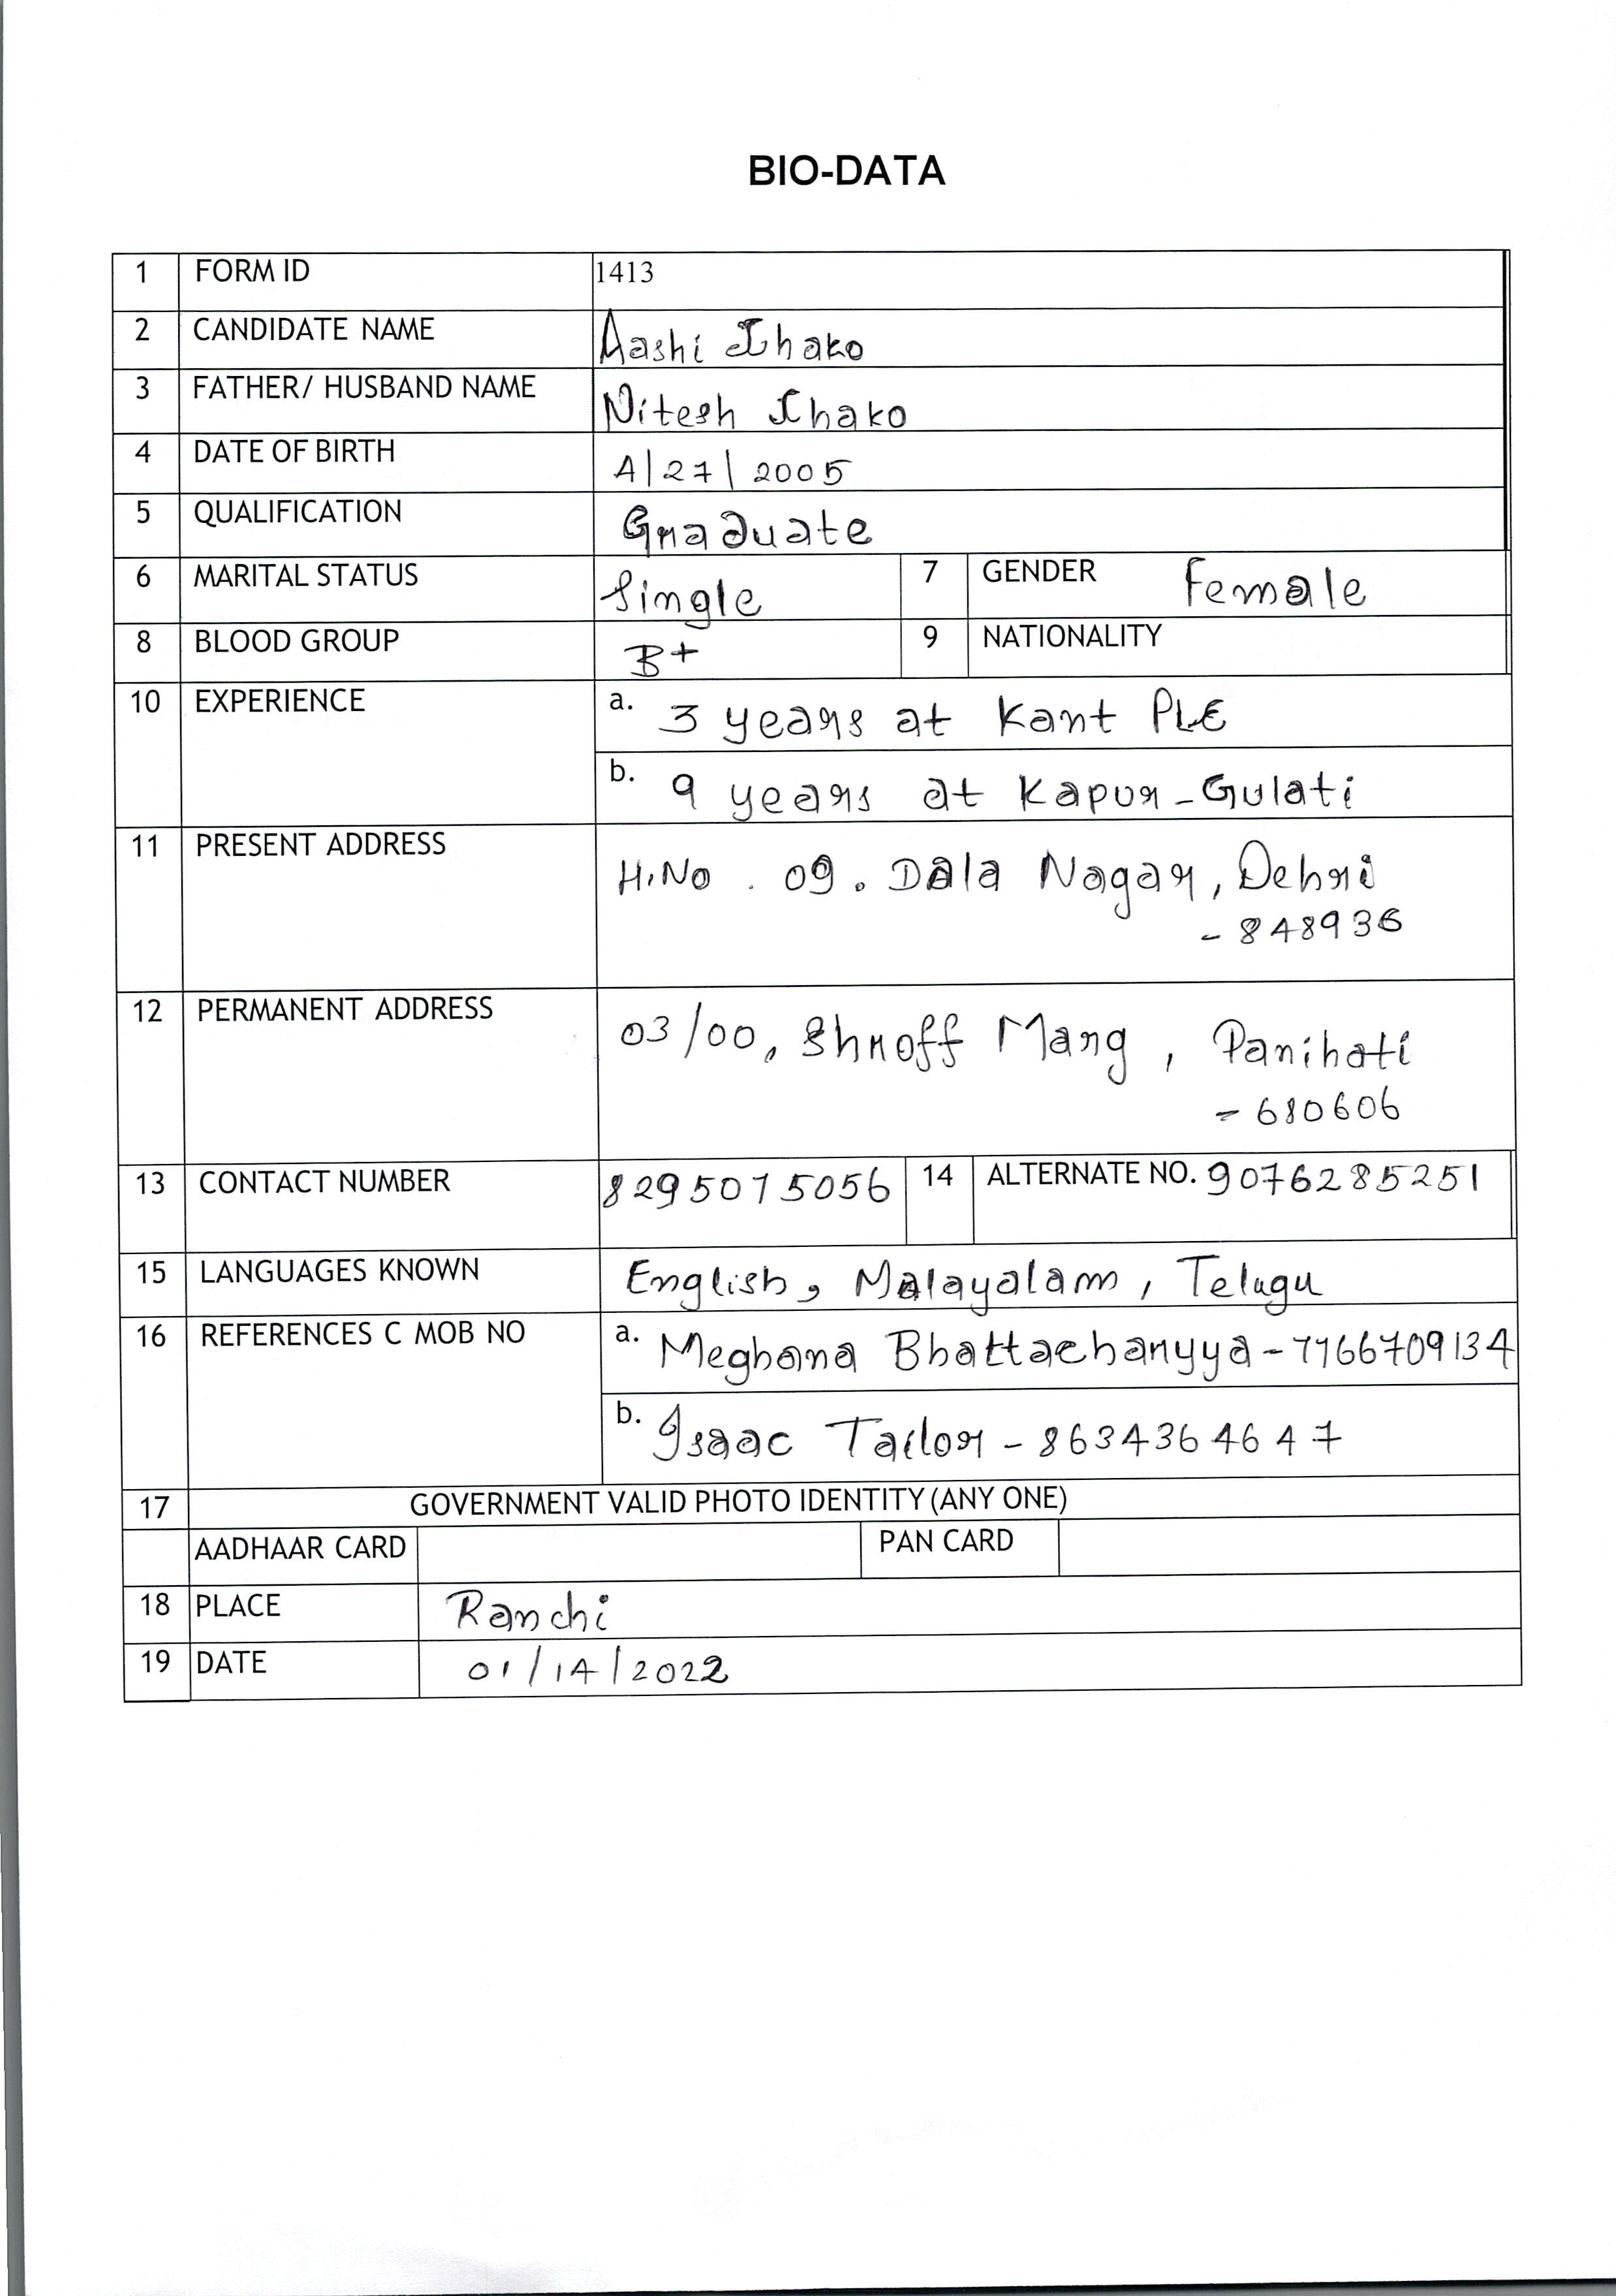 BIO-DATA
1 FORM ID 1413
2 CANDIDATE NAME Aashi Ihako
3 FATHER/ HUSBAND NAME Nitesh Ihako
4 DATE OF BIRTH 4/27/2005
5 QUALIFICATION Graduate
6 MARITAL STATUS Single 7 GENDER Female
8 BLOOD GROUP B+ 9 NATIONALITY
10 EXPERIENCE a. 3 years at Kant PLE
b. 9 years at Kapur-Gulati
11 PRESENT ADDRESS H.No. 09. Dala Nagar, Dehri
- 848936
12 PERMANENT ADDRESS 03/00, Shroff Marg, Panihati
- 680606
13 CONTACT NUMBER 8295015056 14 ALTERNATE NO. 9076285251
15 LANGUAGES KNOWN English, Malayalam, Telugu
16 REFERENCES C MOB NO a. Meghana Bhattacharyya - 7766709134
b. Isaac Tailor - 8634364647
17 GOVERNMENT VALID PHOTO IDENTITY (ANY ONE)
AADHAAR CARD PAN CARD
18 PLACE Ranchi
19 DATE 01/14/2022